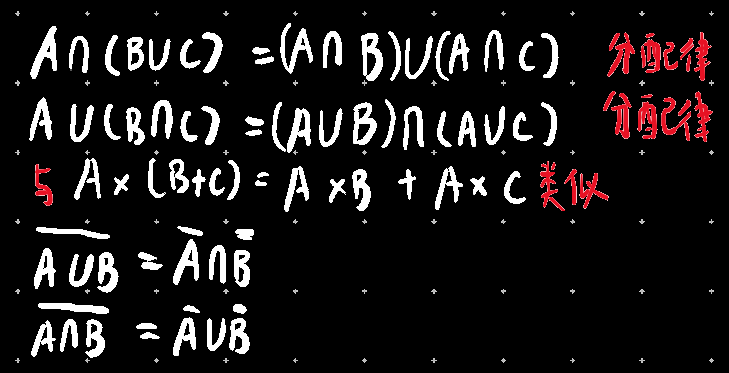 A∩(B∪C) =(A∩B)∪(A∩C) 分配律
A∪(B∩C) =(A∪B)∩(A∪C) 分配律
与 A×(B+C) = A×B + A×C 类似
A̅∪̅B̅ = A̅∩B̅
A̅∩̅B̅ = A̅∪B̅